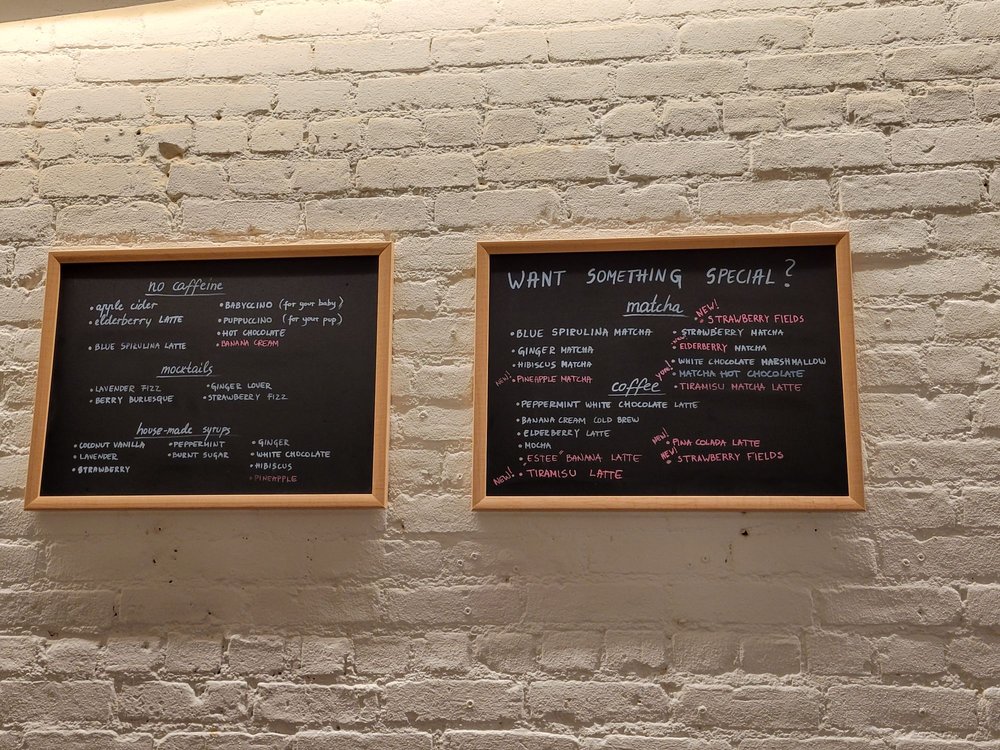 no caffeine
• apple cider
• elderberry LATTE
• BLUE SPIRULINA LATTE
• BABYCCINO (for your baby)
• PUPPUCCINO (for your pup)
• HOT CHOCOLATE
• BANANA CREAM
mocktails
• LAVENDER FIZZ
• BERRY BURLESQUE
• GINGER LOVER
• STRAWBERRY FIZZ
house-made syrups
• COCONUT VANILLA
• LAVENDER
• STRAWBERRY
• PEPPERMINT
• BURNT SUGAR
• GINGER
• WHITE CHOCOLATE
• HIBISCUS
• PINEAPPLE
WANT SOMETHING SPECIAL?
matcha
• BLUE SPIRULINA MATCHA
• GINGER MATCHA
• HIBISCUS MATCHA
NEW! • PINEAPPLE MATCHA
NEW!
• STRAWBERRY FIELDS
• STRAWBERRY MATCHA
• ELDERBERRY MATCHA
• WHITE CHOCOLATE MARSHMALLOW
yum! • MATCHA HOT CHOCOLATE
• TIRAMISU MATCHA LATTE
coffee
• PEPPERMINT WHITE CHOCOLATE LATTE
• BANANA CREAM COLD BREW
• ELDERBERRY LATTE
• MOCHA
• "ESTEE" BANANA LATTE
NEW! • TIRAMISU LATTE
NEW! • PINA COLADA LATTE
NEW! • STRAWBERRY FIELDS